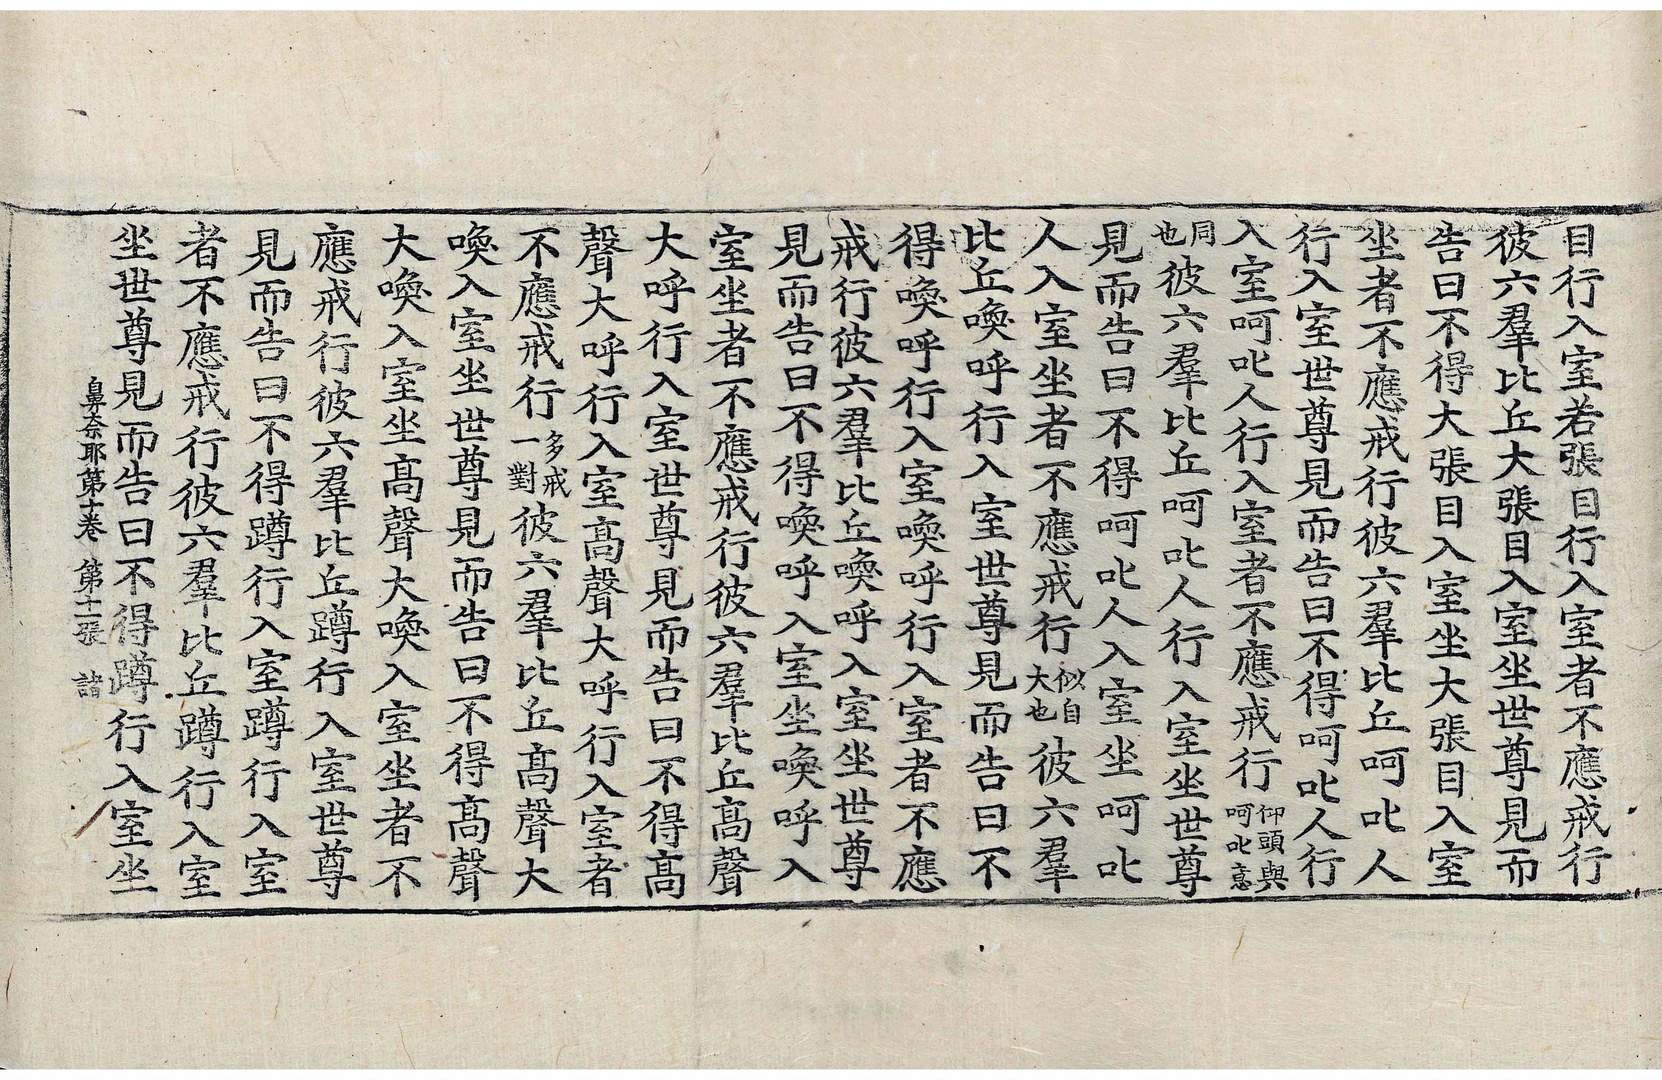 目行入室若張目行入室者不應戒行
彼六羣比丘大張目入室坐世尊見而
告曰不得大張目入室坐大張目入室
坐者不應戒行彼六羣比丘呵叱人
行入室世尊見而告曰不得呵叱人行
入室呵叱人行入室者不應戒行仰頭與呵叱意
同也彼六羣比丘呵叱人行入室坐世尊
見而告曰不得呵叱人入室坐呵叱
人入室坐者不應戒行似自大也彼六羣
比丘喚呼行入室世尊見而告曰不
得喚呼行入室喚呼行入室者不應
戒行彼六羣比丘喚呼入室坐世尊
見而告曰不得喚呼入室坐喚呼入
室坐者不應戒行彼六羣比丘髙聲
大呼行入室世尊見而告曰不得髙
聲大呼行入室髙聲大呼行入室者
不應戒行多戒一對彼六羣比丘髙聲大
喚入室坐世尊見而告曰不得髙聲
大喚入室坐髙聲大喚入室坐者不
應戒行彼六羣比丘蹲行入室世尊
見而告曰不得蹲行入室蹲行入室
者不應戒行彼六羣比丘蹲行入室
坐世尊見而告曰不得蹲行入室坐
鼻奈耶第十卷 第十一張 諸